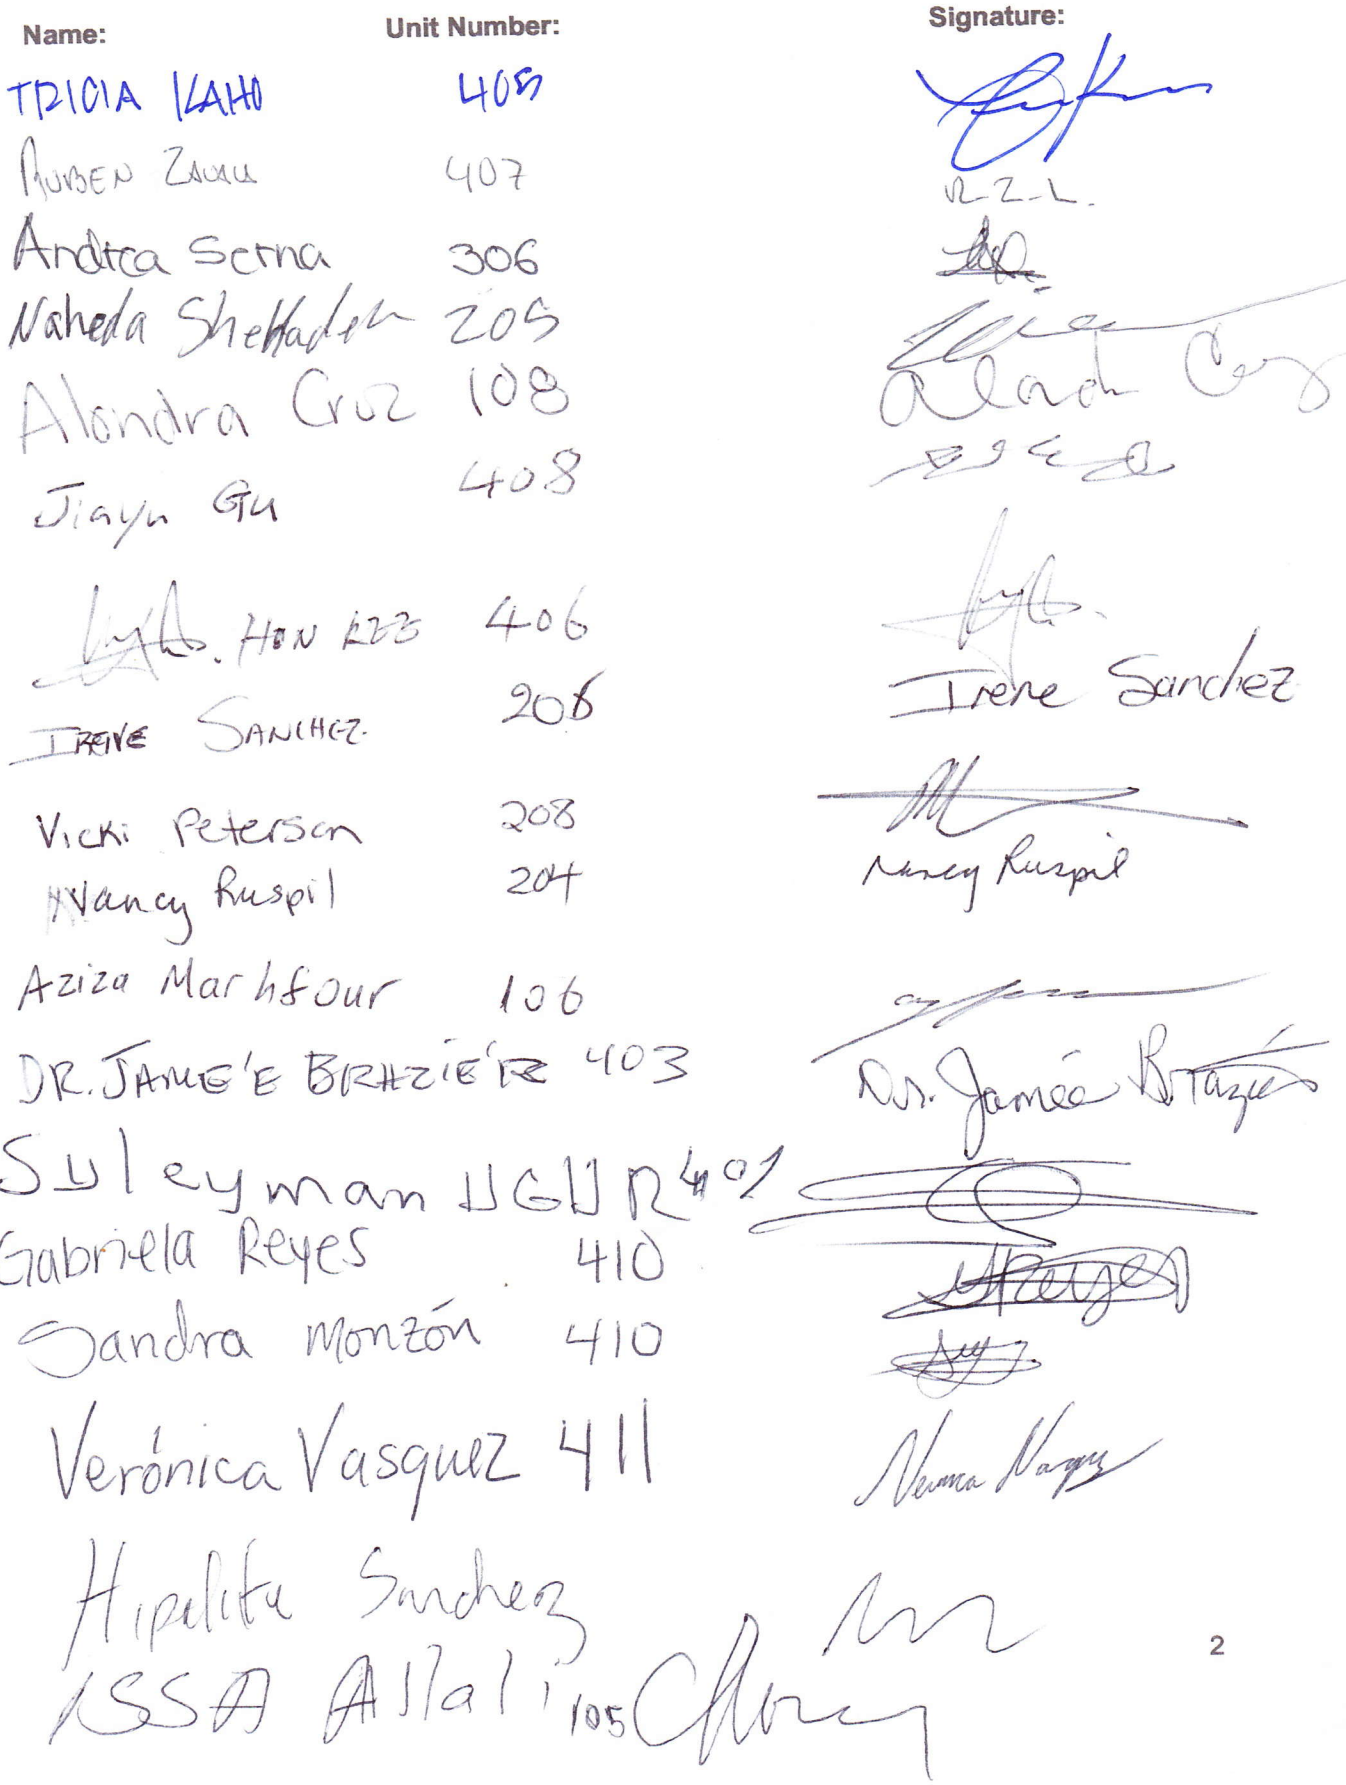 Name: Unit Number: Signature:
TRICIA KAHO 405
RUBEN 407 R.Z.L.
Andrea Serna 306
Naheda Shehadeh 205
Alondra Cruz 108 Alondra Cruz
Jiayu Gu 408
HON KEE 406
IRENE SANCHEZ 206 Irene Sanchez
Vicki Peterson 208
Nancy Ruspil 204 Nancy Ruspil
Aziza Marhfour 106
DR. JAME'E BRAZIE'R 403 Dr. Jamée Brazier
Syleyman UGUR 401
Gabriela Reyes 410 GReyes
Sandra Monzón 410
Verónica Vasquez 411
Hipolita Sanchez
ISSA Allali 105
2